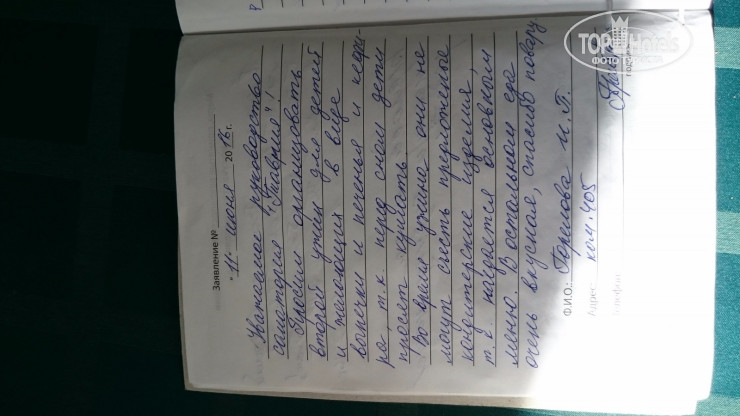 Заявление №
"11" июня 2016 г.
Уважаемое руководство
санатория "Таврия"!
Просим организовать
второй ужин для детей
и желающих в виде
выпечки и печенья и кефи-
ра, т.к. перед сном дети
просят кушать.
Во время ужина они не
могут съесть предложенные
кондитерские изделия,
т.к. наедаются основным
меню. В остальном еда
очень вкусная, спасибо повару
Ф.И.О.: Горелова И.П.
Адрес: ком. 405
Телефон:
TOP Hotels
ФОТО